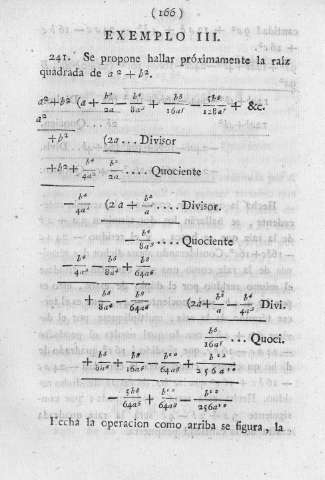 (166)
EXEMPLO III.
241. Se propone hallar próximamente la raiz
quadrada de a² + b².
a²+b² (a + b²/2a − b⁴/8a³ + b⁶/16a⁵ − 5b⁸/128a⁷ + &c.
a²
+b² (2a ... Divisor
+b²+ b⁴/4a² b²/2a .... Quociente
− b⁴/4a² (2a + b²/a .... Divisor.
− b⁴/8a³ .... Quociente
− b⁴/4a² − b⁶/8a⁴ + b⁸/64a⁶
+ b⁶/8a⁴ − b⁸/64a⁶ (2a + b²/a − b⁴/4a³ Divi.
b⁶/16a⁵ ... Quoci.
+ b⁶/8a⁴ + b⁸/16a⁶ − b¹⁰/64a⁸ + b¹²/256a¹⁰
− 5b⁸/64a⁶ + b¹⁰/64a⁸ − b¹²/256a¹⁰
Hecha la operacion como arriba se figura, la